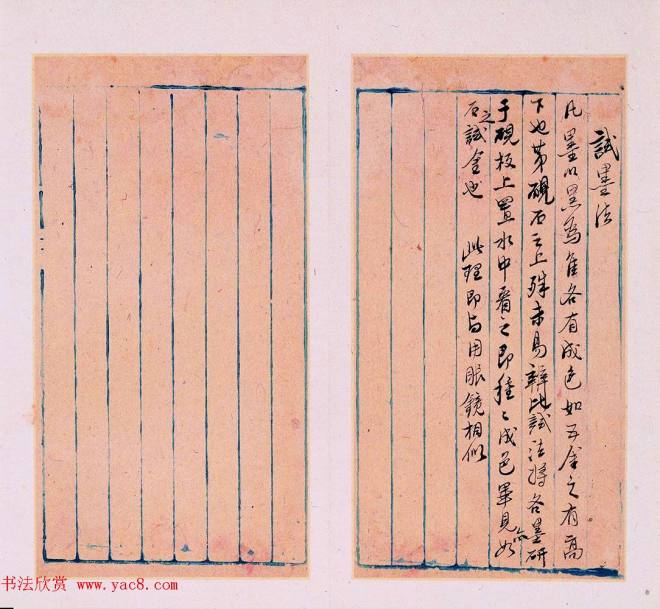 試墨法
凡墨以黑為佳各有成色如五金之有高
下也苐硯石之上殊未易辨此試法將各墨研
于硯板上置水中看之即種〻成色畢見如
石之試金也 此理即與用眼鏡相似
书法欣赏 www.yac8.com